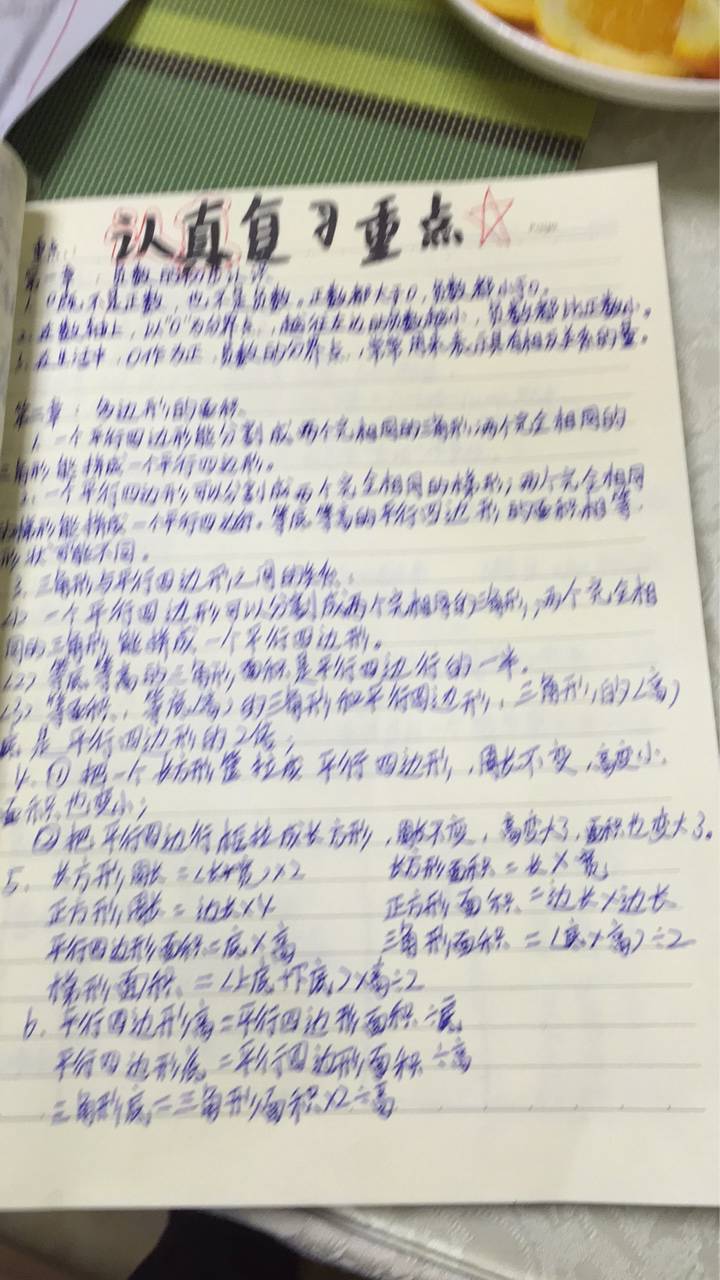 认真复习重点
重点:
第一章:负数的初步认识
1. 0既不是正数,也不是负数。正数都大于0,负数都小于0。
2. 在数轴上,以"0"为分界点,越往左边的数越小,负数都比正数小。
3. 在生活中,0作为正、负数的分界点,常常用来表示具有相反关系的量。
第二章:多边形的面积
1. 一个平行四边形能分割成两个完相同的三角形;两个完全相同的
三角形能拼成一个平行四边形。
2. 一个平行四边形可以分割成两个完全相同的梯形;两个完全相同
的梯形能拼成一个平行四边形。等底等高的平行四边形的面积相等,
形状可能不同。
3. 三角形与平行四边形之间的
(1) 一个平行四边形可以分割成两个完相同的三角形;两个完全相
同的三角形能拼成一个平行四边形。
(2) 等底等高的三角形面积是平行四边行的一半。
(3) 等面积、等底(高)的三角形和平行四边形,三角形的(高)
底是平行四边形的2倍;
4. ① 把一个长方形框拉成平行四边形,周长不变,高变小,
面积也变小;
② 把平行四边行框拉成长方形,周长不变,高变大了,面积也变大了。
5. 长方形周长=(长+宽)×2 长方形面积=长×宽
正方形周长=边长×4 正方形面积=边长×边长
平行四边形面积=底×高 三角形面积=(底×高)÷2
梯形面积=(上底+下底)×高÷2
6. 平行四边形高=平行四边形面积÷底
平行四边形底=平行四边形面积÷高
三角形底=三角形面积×2÷高